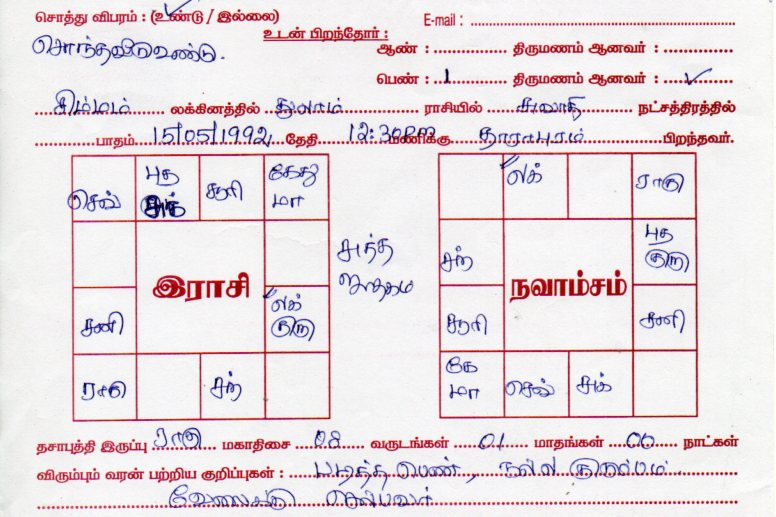 சொத்து விபரம் : (உண்டு / இல்லை)
E-mail :
சொந்தவீடு உண்டு.
உடன் பிறந்தோர் :
ஆண் : திருமணம் ஆனவர் :
பெண் : 1 திருமணம் ஆனவர் : ✓
சிம்மம் லக்கினத்தில் துலாம் ராசியில் சுவாதி நட்சத்திரத்தில்
பாதம் 15/05/1992 தேதி 12:30PM மணிக்கு தாராபுரம் பிறந்தவர்.
செவ் புத சுக் சூரி கேது மா
சனி இராசி லக் குரு
ராகு சந்
சுத்த ஜாதகம்
லக் ராகு
சந் நவாம்சம் புத குரு
சூரி சனி
கே மா செவ் சுக்
தசாபுத்தி இருப்பு ராகு மகாதிசை 08 வருடங்கள் 01 மாதங்கள் 00 நாட்கள்
விரும்பும் வரன் பற்றிய குறிப்புகள் : படித்த பெண், நல்ல குடும்பம்.
வேலைக்கு செல்பவர்